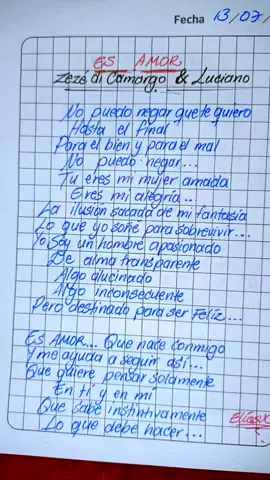 Fecha 13/07/
ES AMOR
Zezé di Camargo & Luciano
No puedo negar que te quiero
Hasta el final
Para el bien y para el mal
No puedo negar...
Tu eres mi mujer amada
Eres mi alegría..
La ilusión sacada de mi fantasía
Lo que yo soñe para sobrevivir...
Yo soy un hombre apasionado
De alma transparente
Algo alucinado
Algo inconsecuente
Pero destinado para ser Feliz...
Es AMOR... Que nace conmigo
Y me ayuda a seguir así...
Que quiere pensar solamente
En tí y en mí
Que sabe instintivamente
Lo que debe hacer...